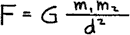 F = G \frac{m_1 m_2}{d^2}